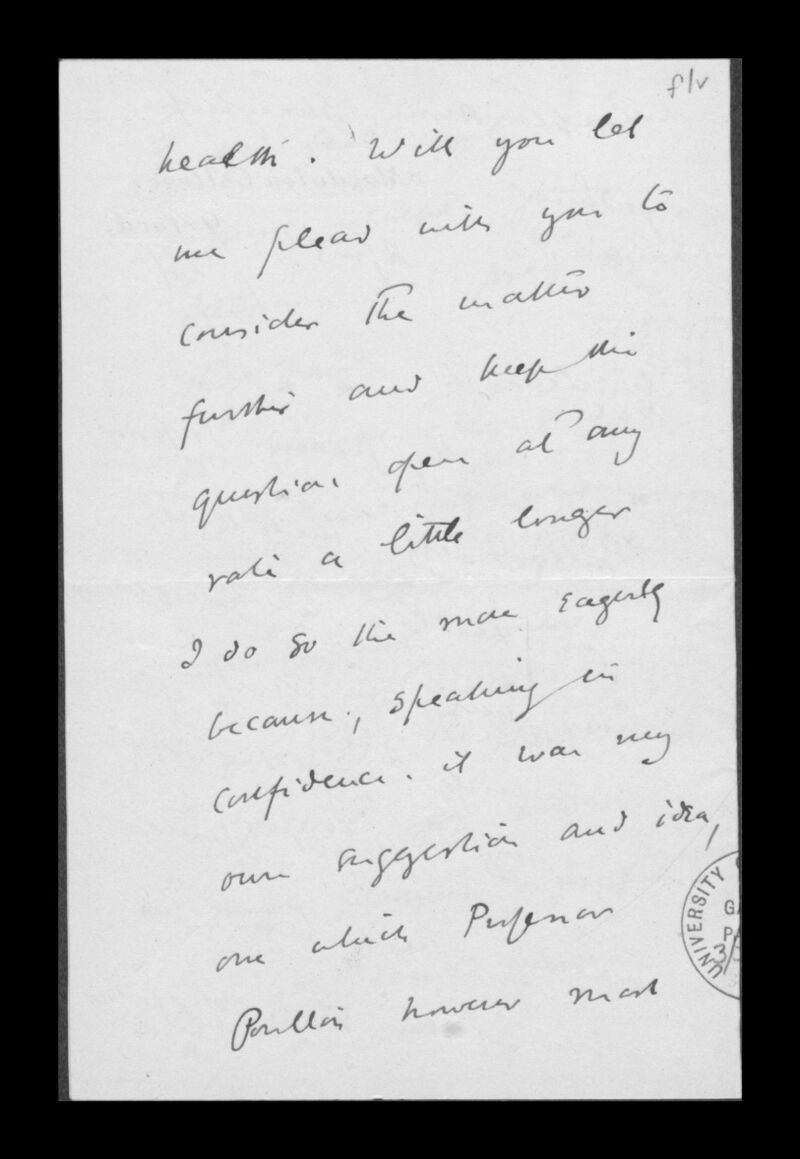 f/v
health. Will you let
me plead with you to
consider the matter
further and keep the
question open at any
rate a little longer
I do so the more eagerly
because, speaking in
confidence. it was my
own suggestion and idea,
one which Professor
Poulton however most
UNIVERSITY
GA
PA
33